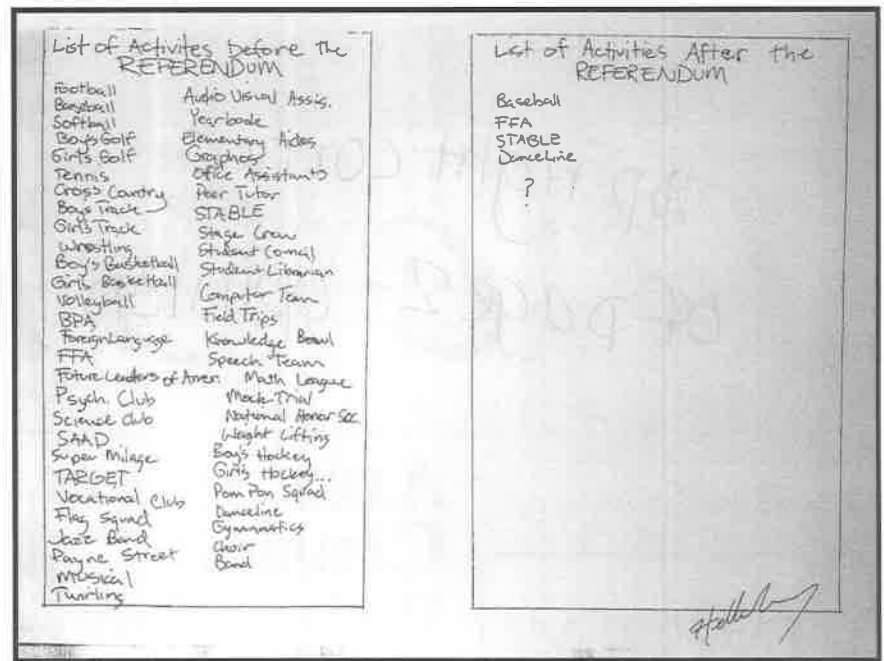 List of Activites Before The
REFERENDUM
Football
Baseball
Softball
Boys Golf
Girl's Golf
Tennis
Cross Country
Boys Track
Girl's Track
Wrestling
Boy's Basketball
Girls Basketball
Volleyball
BPA
Foreign Language
FFA
Future Leaders of Amer.
Psych. Club
Science Club
SAAD
Super Milage
TARGET
Vocational Club
Flag Squad
Jazz Band
Payne Street
Musical
Twirling
Audio Visual Assis.
Yearbook
Elementary Aides
Graphos
Office Assistants
Peer Tutor
STABLE
Stage Crew
Student Council
Student Librarian
Computer Team
Field Trips
Knowledge Bowl
Speech Team
Math League
Mock Trial
National Honor Soc.
Weight Lifting
Boy's Hockey
Girl's Hockey...
Pom Pon Squad
Danceline
Gymnastics
Choir
Band
List of Activities After the
REFERENDUM
Baseball
FFA
STABLE
DanceLine
?